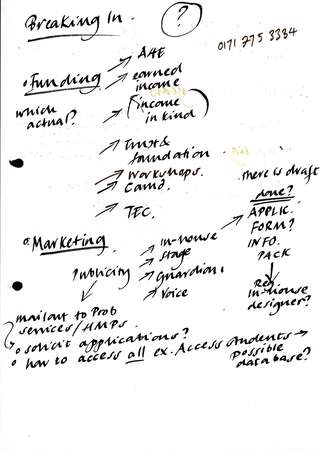 Breaking In.
?
0171 275 3384
• Funding
→ ACE
→ earned income
which actual?
(income in kind)
→ Trust & foundation
→ workshops.
→ Camd.
→ TEC.
there is draft
done?
APPLIC.
FORM?
INFO.
PACK
• Marketing
Publicity
→ In-house
→ Stage
→ Guardian
→ Voice
Reg.
In-house
designer?
mailout to Prob
services/HMPs.
• solicit applications?
• how to access all ex. Access students →
possible
database?